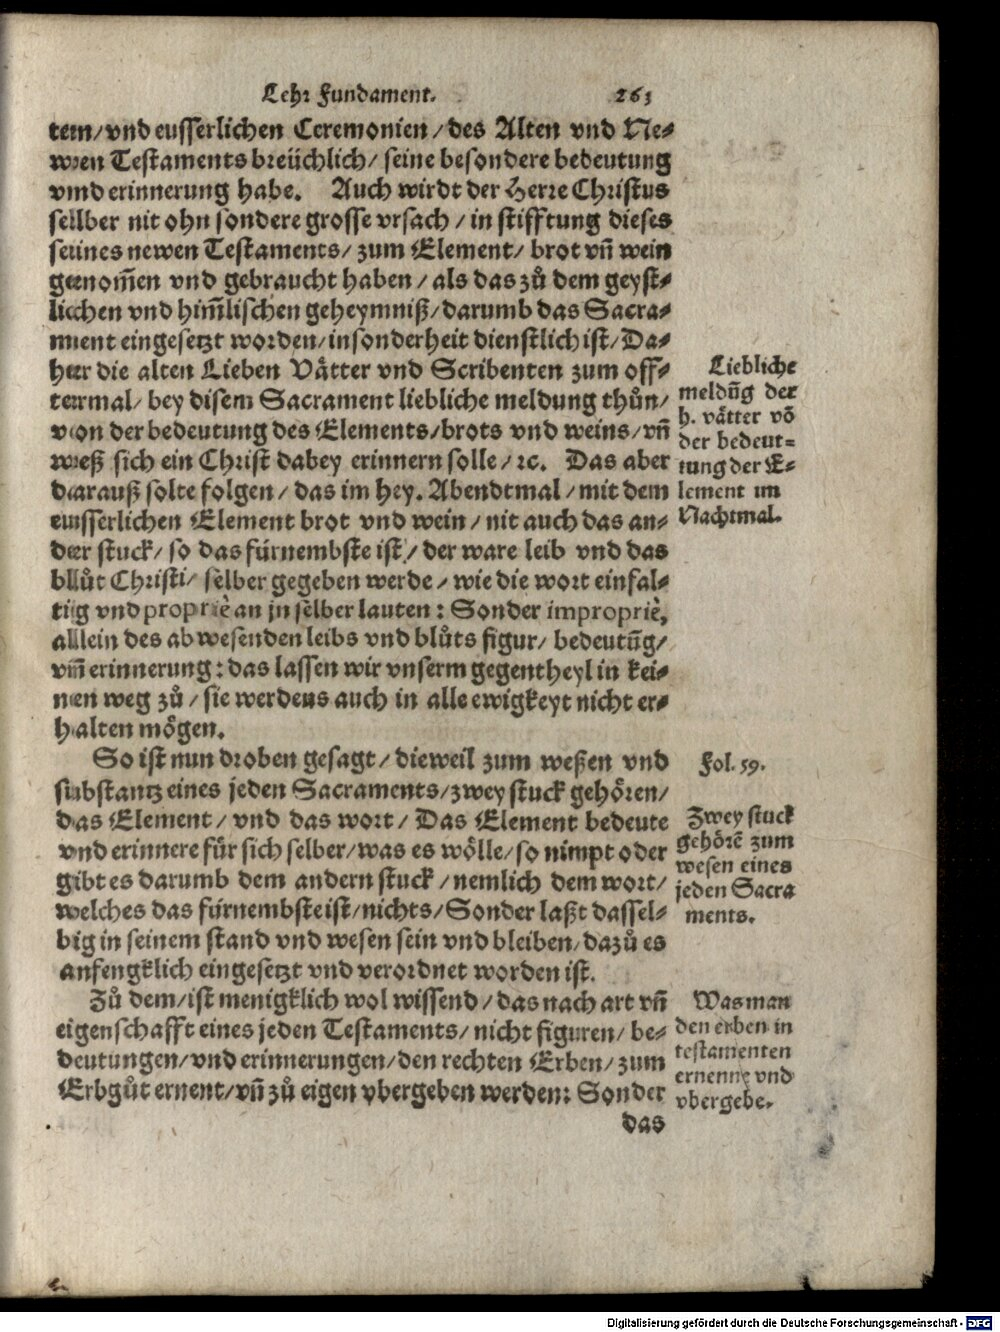 Lehr Fundament. 263
tem/vnd eusserlichen Ceremonien/des Alten vnd Ne⸗
wen Testaments breüchlich/ seine besondere bedeutung
vnd erinnerung habe. Auch wirdt der Herre Christus
selber nit ohn sondere grosse vrsach/in stifftung dieses
seines newen Testaments/ zum Element/ brot vñ wein
genom̃en vnd gebraucht haben/als das zů dem geyst⸗
lichen vnd him̃lischen geheymniß/darumb das Sacra⸗
ment eingesetzt worden/insonderheit dienstlich ist/Da⸗
her die alten Lieben Vätter vnd Scribenten zum off⸗
termal/ bey disem Sacrament liebliche meldung thůn/
von der bedeutung des Elements/brots vnd weins/vñ
weß sich ein Christ dabey erinnern solle/ꝛc. Das aber
darauß solte folgen/ das im hey. Abendtmal/mit dem
eusserlichen Element brot vnd wein/nit auch das an⸗
der stuck/ so das fürnembste ist/ der ware leib vnd das
blůt Christi/ selber gegeben werde/wie die wort einfal⸗
tig vnd propriè an jn selber lauten: Sonder impropriè,
allein des abwesenden leibs vnd blůts figur/ bedeutũg/
vñ erinnerung: das lassen wir vnserm gegentheyl in kei⸗
nen weg zů/sie werdens auch in alle ewigkeyt nicht er⸗
halten mögen.
Liebliche
meldũg der
h. vätter võ
der bedeut⸗
tung der E⸗
lement im
Nachtmal.
So ist nun droben gesagt/dieweil zum weßen vnd
substantz eines jeden Sacraments/zwey stuck gehören/
das Element/ vnd das wort/ Das Element bedeute
vnd erinnere für sich selber/was es wölle/so nimpt oder
gibt es darumb dem andern stuck/nemlich dem wort/
welches das fürnembste ist/nichts/Sonder laßt dassel⸗
big in seinem stand vnd wesen sein vnd bleiben/dazů es
anfengklich eingesetzt vnd verordnet worden ist.
Fol. 59.
Zwey stuck
gehörẽ zum
wesen eines
jeden Sacra
ments.
Zů dem/ist menigklich wol wissend/das nach art vñ
eigenschafft eines jeden Testaments/nicht figuren/ be⸗
deutungen/vnd erinnerungen/den rechten Erben/zum
Erbgůt ernent/vñ zů eigen vbergeben werden: Sonder
das
Was man
den erben in
testamenten
ernenne vnd
vbergebe.
Digitalisierung gefördert durch die Deutsche Forschungsgemeinschaft - DFG